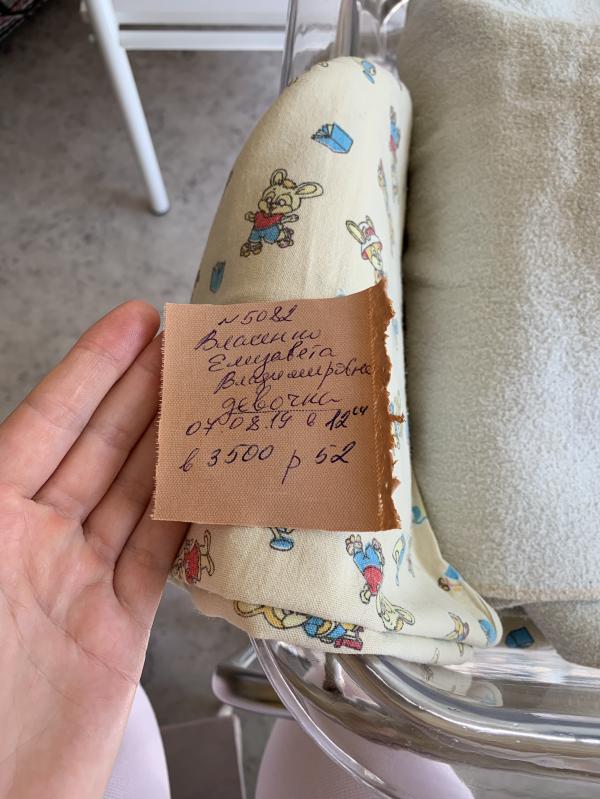 № 5082
Власенко
Елизавета
Владимировна
девочка
07 08.19 в 12 44
в 3500 р 52